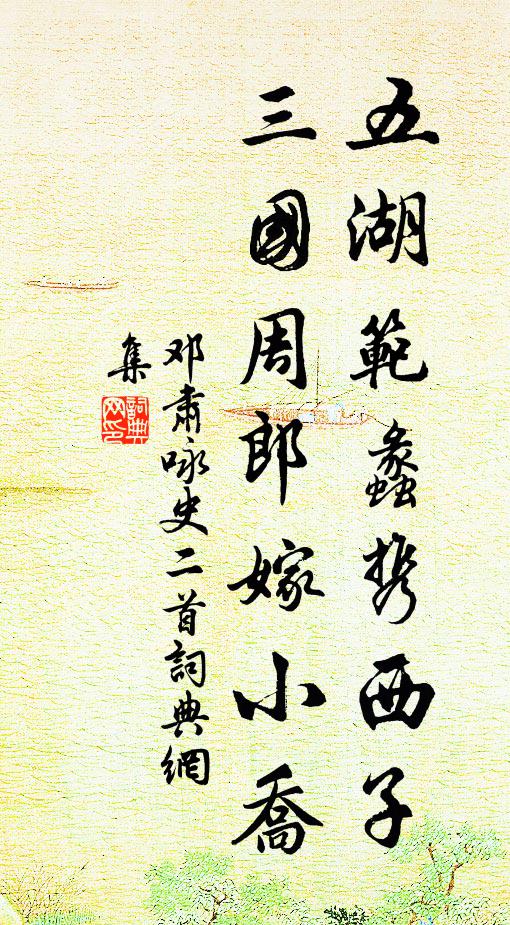 五湖範蠡携西子
三國周郎嫁小喬
邓肅咏史二首詞典網
集
詞典网印